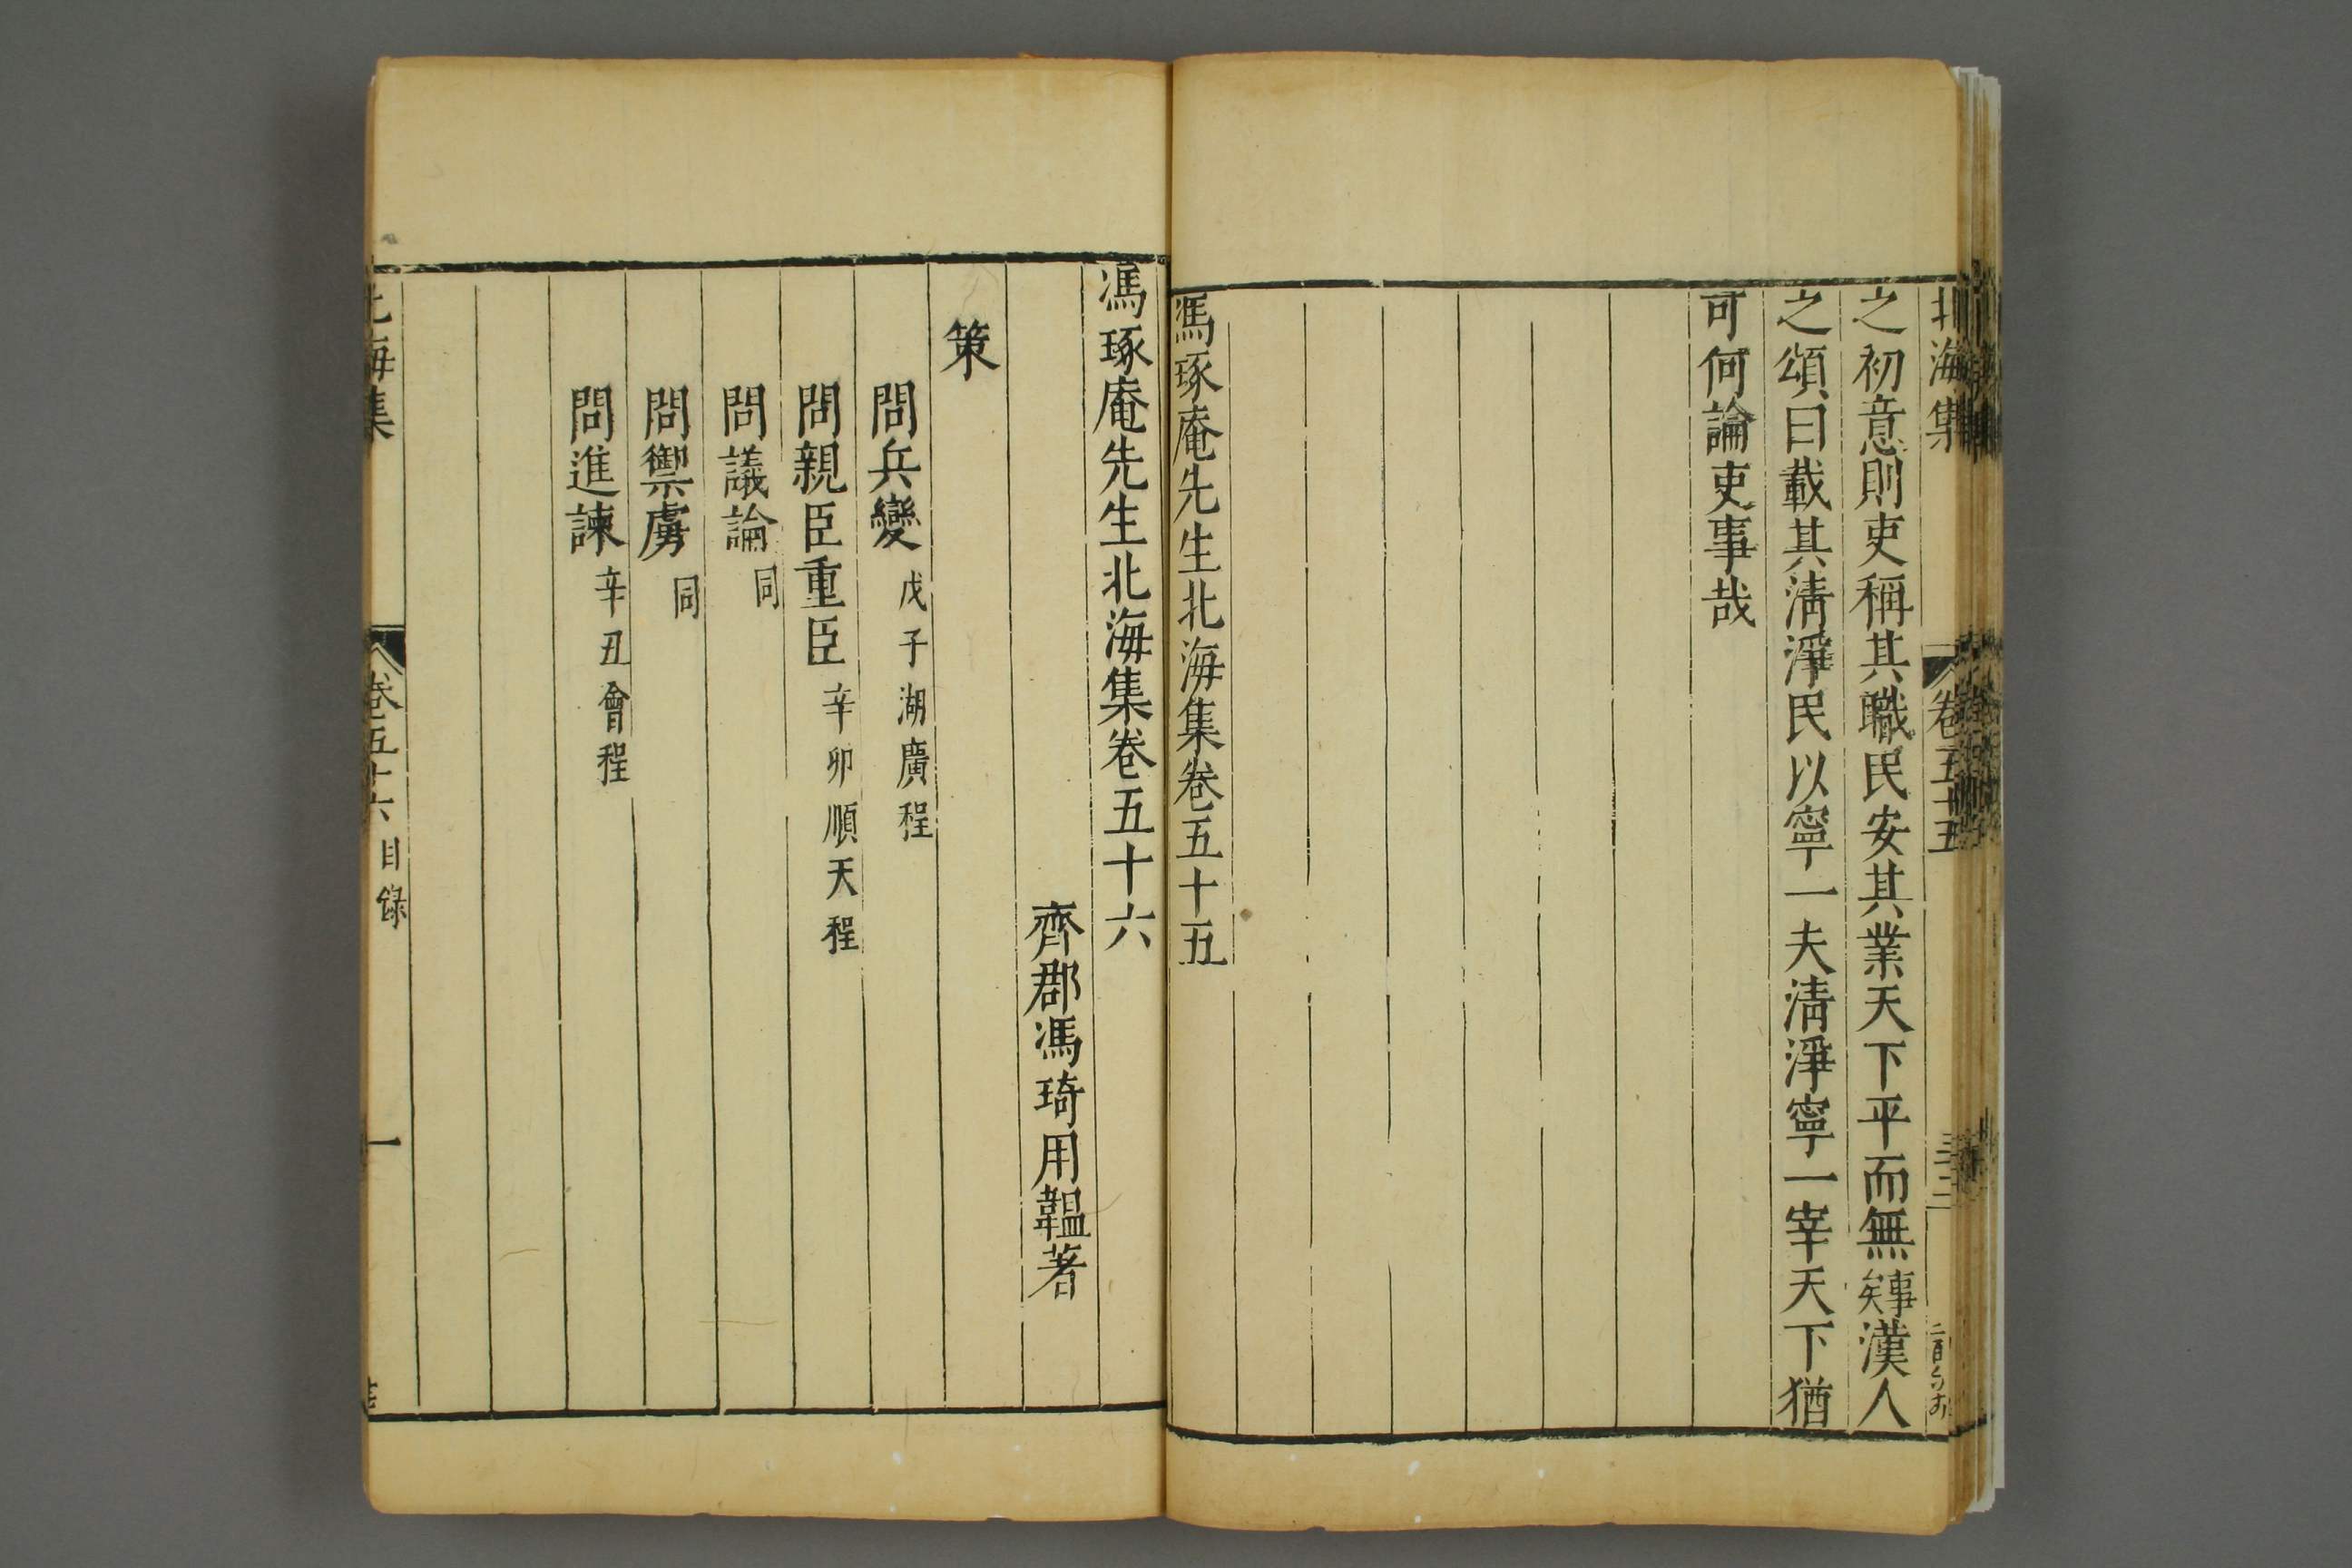 北海集 卷五十五 三十二
之初意則吏稱其職民安其業天下平而無事矣漢人
之頌曰載其清淨民以寧一夫清淨寧一宰天下猶
可何論吏事哉
馮琢庵先生北海集卷五十五
馮琢庵先生北海集卷五十六
齊郡馮琦用韞著
策
問兵變 戊子湖廣程
問親臣重臣 辛卯順天程
問議論 同
問禦虜 同
問進諫 辛丑會程
北海集 卷五十六 目錄 一